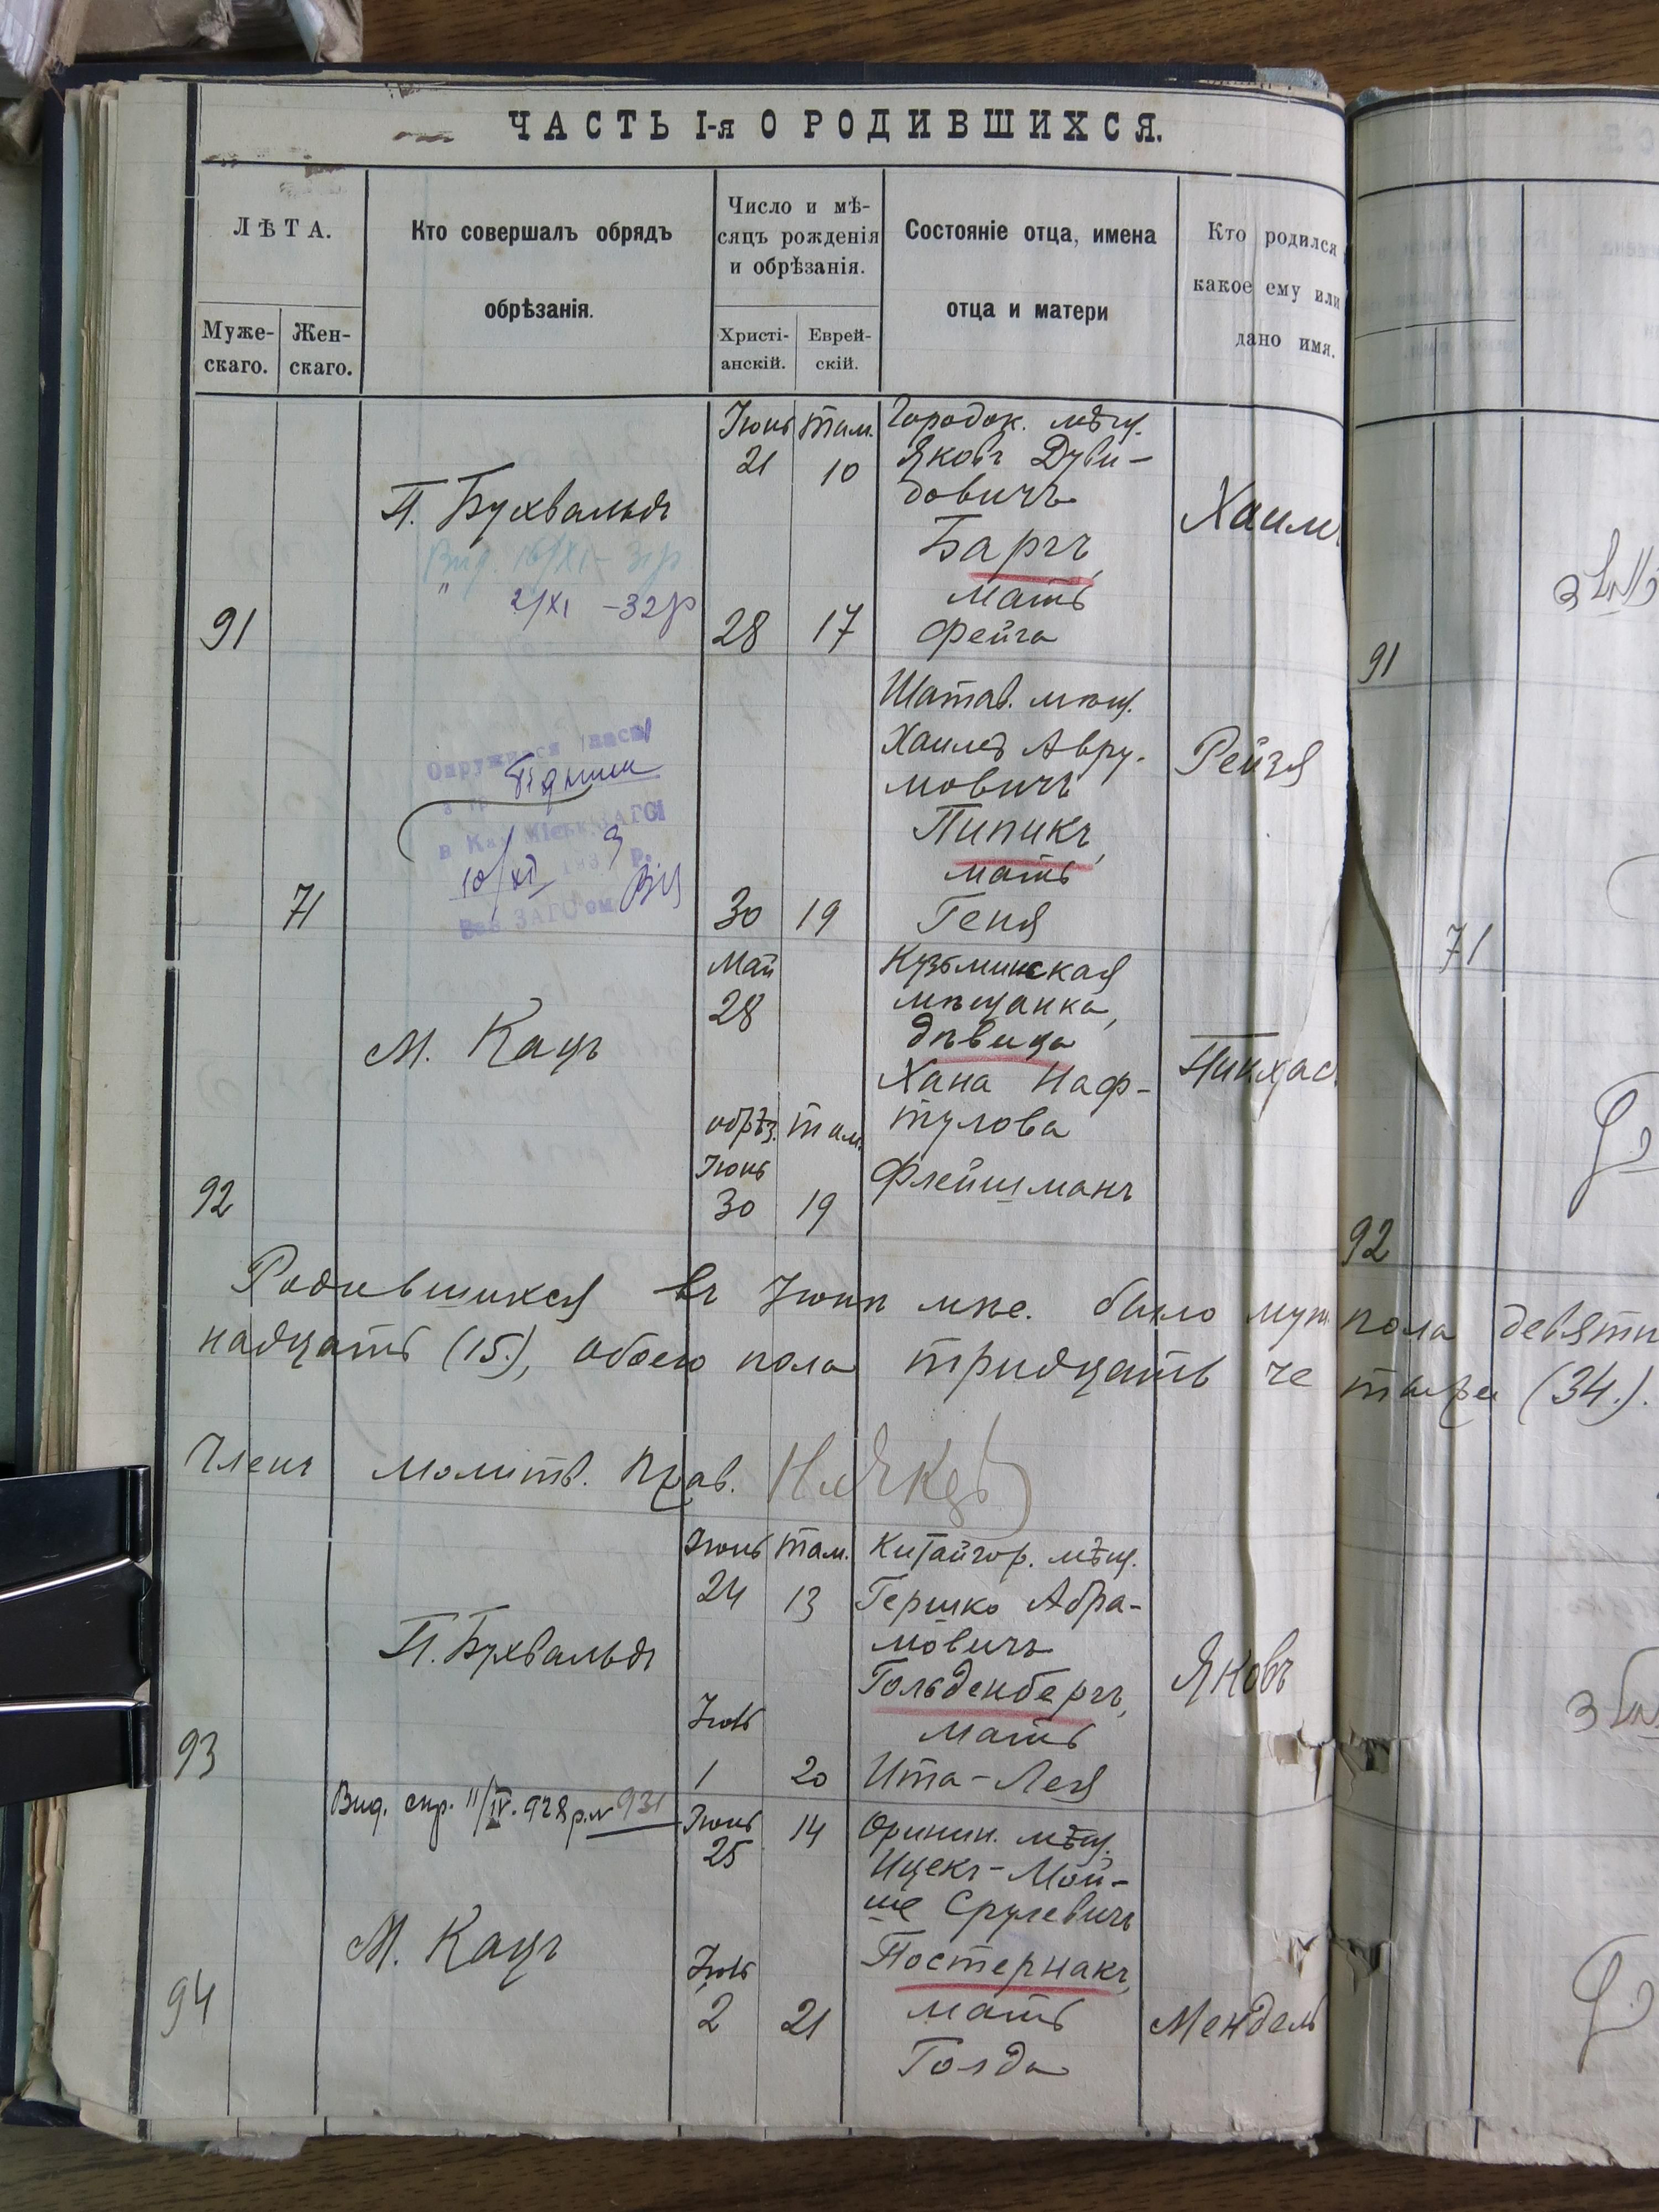 ЧАСТЬ I-я О РОДИВШИХСЯ.
ЛѢТА.
Муже-
скаго.
Жен-
скаго.
Кто совершалъ обрядъ
обрѣзанія.
Число и мѣ-
сяцъ рожденія
и обрѣзанія.
Христі-
анскій.
Еврей-
скій.
Состояніе отца, имена
отца и матери
Кто родился
какое ему или
дано имя.
91
П. Бухвальдъ
Вид. 16/XI - 31р
" 2/XI - 32р
Іюнь
21
28
Там.
10
17
Городок. мѣщ.
Яковъ Дуви-
довичъ
Баргъ,
мать
Фейга
Хаимъ
91
71
10/XI
30
19
Шатав. мѣщ.
Хаимъ Авру-
мовичъ
Пипикъ,
мать
Геня
Рейзя
71
92
М. Кацъ
Май
28
обрѣз.
Іюнь
30
Там.
19
Кузьминская
мѣщанка,
дѣвица
Хана Наф-
тулова
Флейшманъ
Пинхас
92
Родившихся въ Іюнѣ мѣс. было муж пола девятн
надцать (15.), обоего пола тридцать четыре (34.).
Членъ молитв. Прав.
93
П. Бухвальдъ
Іюнь
24
Іюль
1
Там.
13
20
Китайгор. мѣщ.
Гершко Абра-
мовичъ
Гольденбергъ,
мать
Ита-Лея
Яковъ
94
Вид. спр. 11/IV. 928 р. № 931
М. Кацъ
Іюнь
25
Іюль
2
14
21
Оринин. мѣщ.
Ицекъ-Мой-
ше Срулевичъ
Постернакъ,
мать
Голда
Мендель